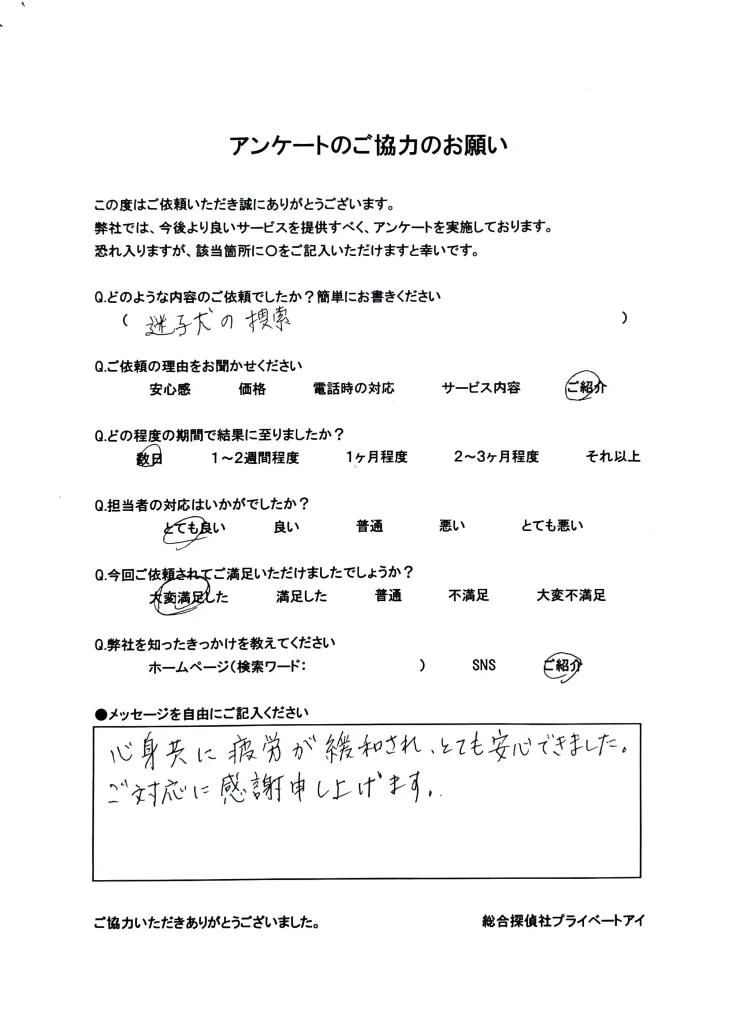 アンケートのご協力のお願い
この度はご依頼いただき誠にありがとうございます。
弊社では、今後より良いサービスを提供すべく、アンケートを実施しております。
恐れ入りますが、該当箇所に〇をご記入いただけますと幸いです。
Q.どのような内容のご依頼でしたか？簡単にお書きください
（ 迷子犬の捜索 ）
Q.ご依頼の理由をお聞かせください
安心感 価格 電話時の対応 サービス内容 ご紹介
Q.どの程度の期間で結果に至りましたか？
数日 1～2週間程度 1ヶ月程度 2～3ヶ月程度 それ以上
Q.担当者の対応はいかがでしたか？
とても良い 良い 普通 悪い とても悪い
Q.今回ご依頼されてご満足いただけましたでしょうか？
大変満足した 満足した 普通 不満足 大変不満足
Q.弊社を知ったきっかけを教えてください
ホームページ（検索ワード： ） SNS ご紹介
●メッセージを自由にご記入ください
心身共に疲労が緩和され、とても安心できました。
ご対応に感謝申し上げます。
ご協力いただきありがとうございました。 総合探偵社プライベートアイ